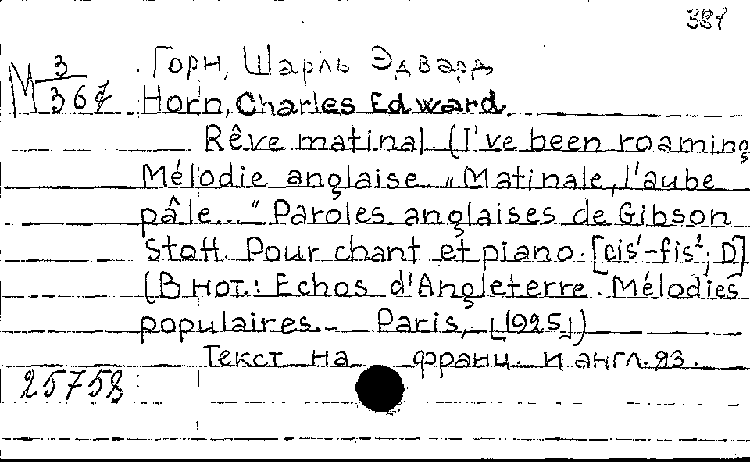 381
М 3/367
Горн, Шарль Эдвард
Horn, Charles Edward
Rêve matinal (I've been roaming
Mélodie anglaise „Matinale, l'aube
pâle..." Paroles anglaises de Gibson
Stott. Pour chant et piano. [cis¹-fis²; D]
(В нот.: Echos d'Angleterre. Mélodies
populaires.- Paris, [1925])
Текст на франц. и англ. яз.
25758